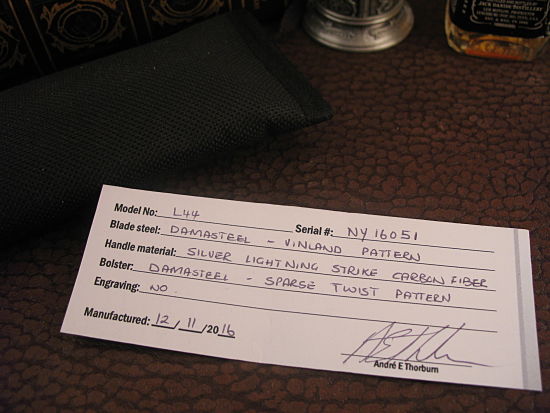 JACK DANIEL DISTILLERY
Model No: L44 Serial #: NY 16051
Blade steel: DAMASTEEL - VINLAND PATTERN
Handle material: SILVER LIGHTNING STRIKE CARBON FIBER
Bolster: DAMASTEEL - SPARSE TWIST PATTERN
Engraving: NO
Manufactured: 12/11/2016
André E Thorburn